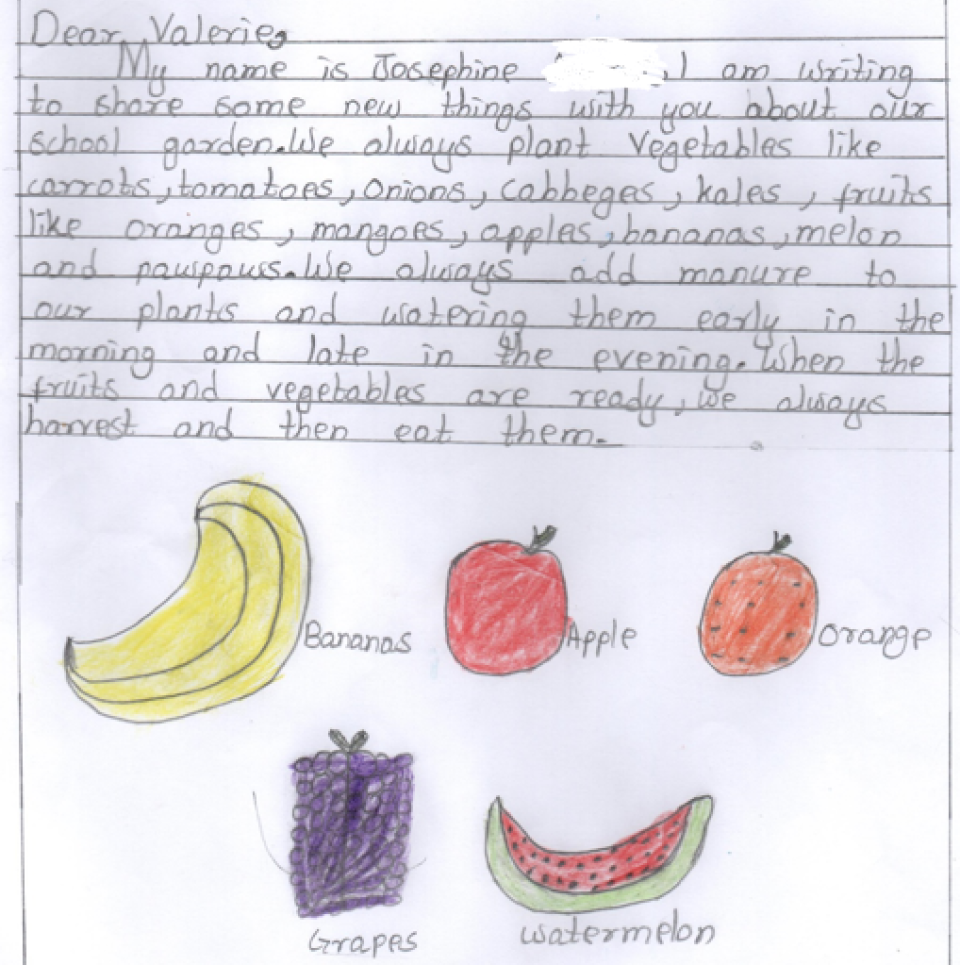 Dear Valerie,
My name is Josephine , I am writing
to share some new things with you about our
school garden.We always plant vegetables like
carrots,tomatoes,onions,cabbeges,kales, fruits
like oranges, mangoes, apples,bananas,melon
and pauspaus.We always add manure to
our plants and watering them early in the
morning and late in the evening.When the
fruits and vegetables are ready,we always
harvest and then eat them.
Bananas
Apple
orange
Grapes
watermelon